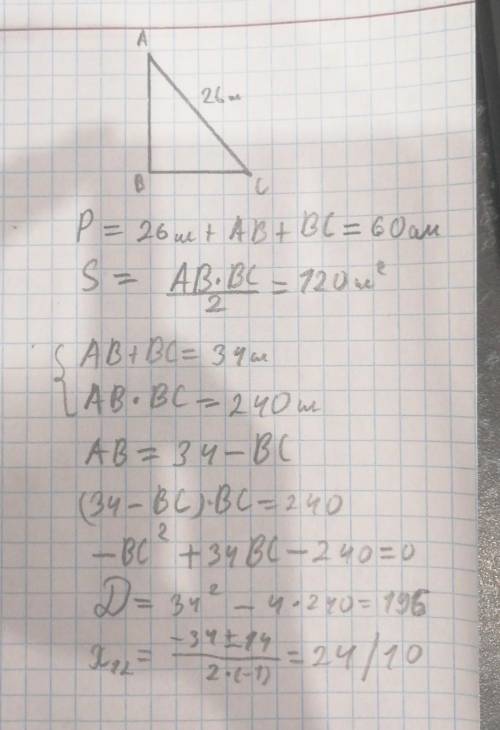 A
26м
B
C
P = 26м + AB + BC = 60м
S = AB·BC/2 = 120м²
{ AB + BC = 34м
AB · BC = 240м
AB = 34 - BC
(34 - BC)·BC = 240
-BC² + 34BC - 240 = 0
D = 34² - 4·240 = 196
x₁₂ = -34±14/2·(-1) = 24/10